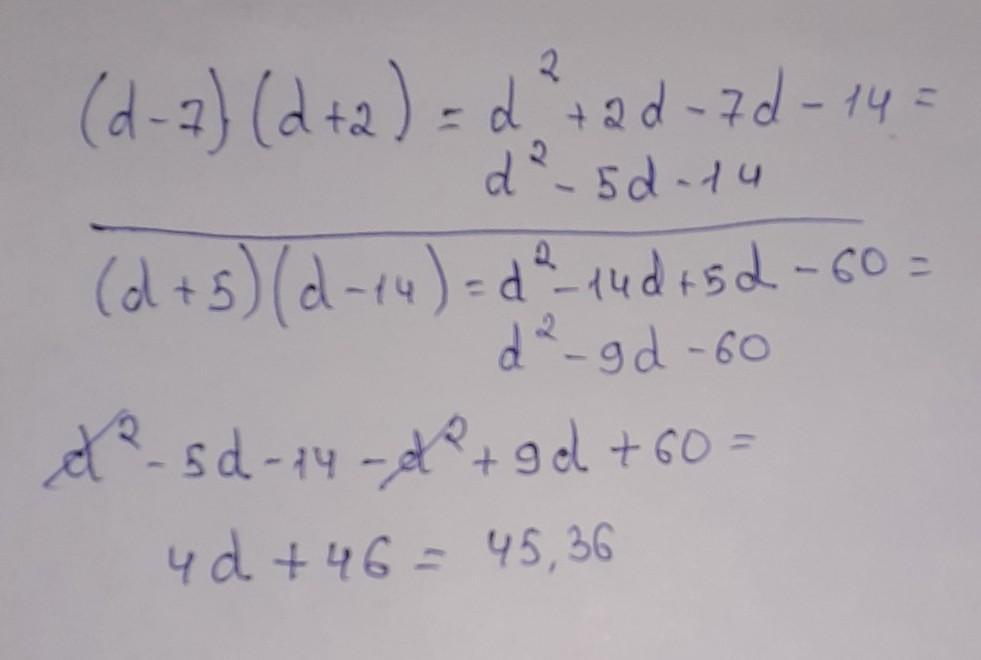 (d-7)(d+2) = d² + 2d - 7d - 14 =
d² - 5d - 14
(d+5)(d-14) = d² - 14d + 5d - 60 =
d² - 9d - 60
d² - 5d - 14 - d² + 9d + 60 =
4d + 46 = 45,36